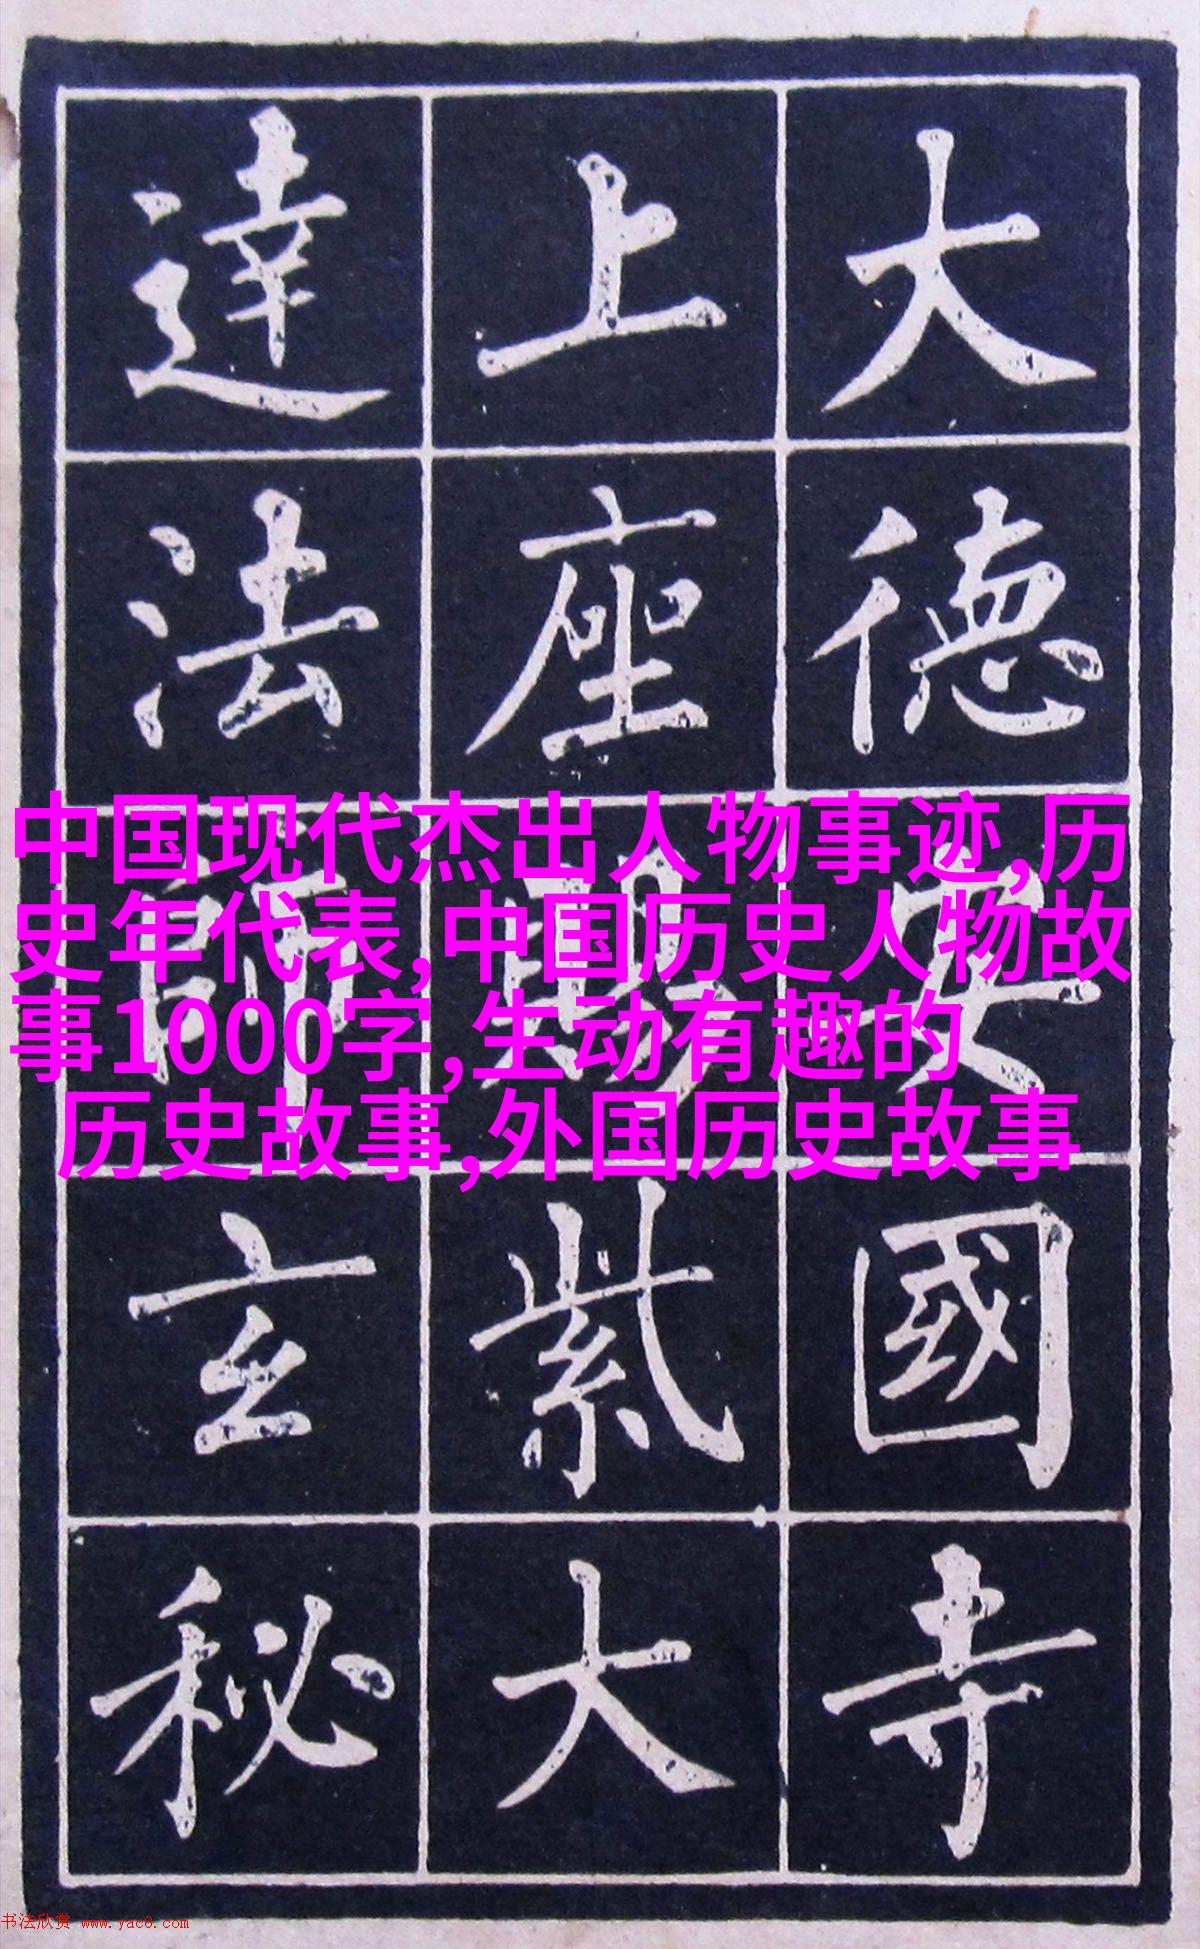 大德安國寺
上座賜紫大
達法師玄秘
中国现代杰出人物事迹,历
史年代表,中国历史人物故
事1000字,生动有趣的
历史故事,外国历史故事
书法欣赏 www.yac8.com